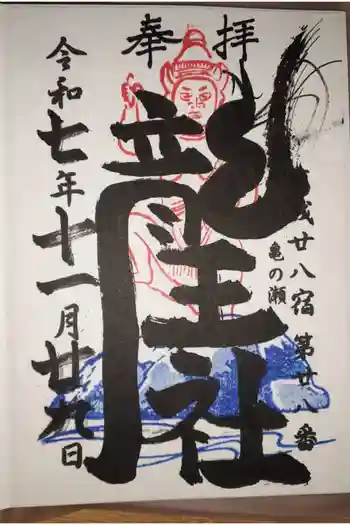 奉拝
葛城廿八宿第廿八番
亀の瀬
龍王社
令和七年十一月廿九日